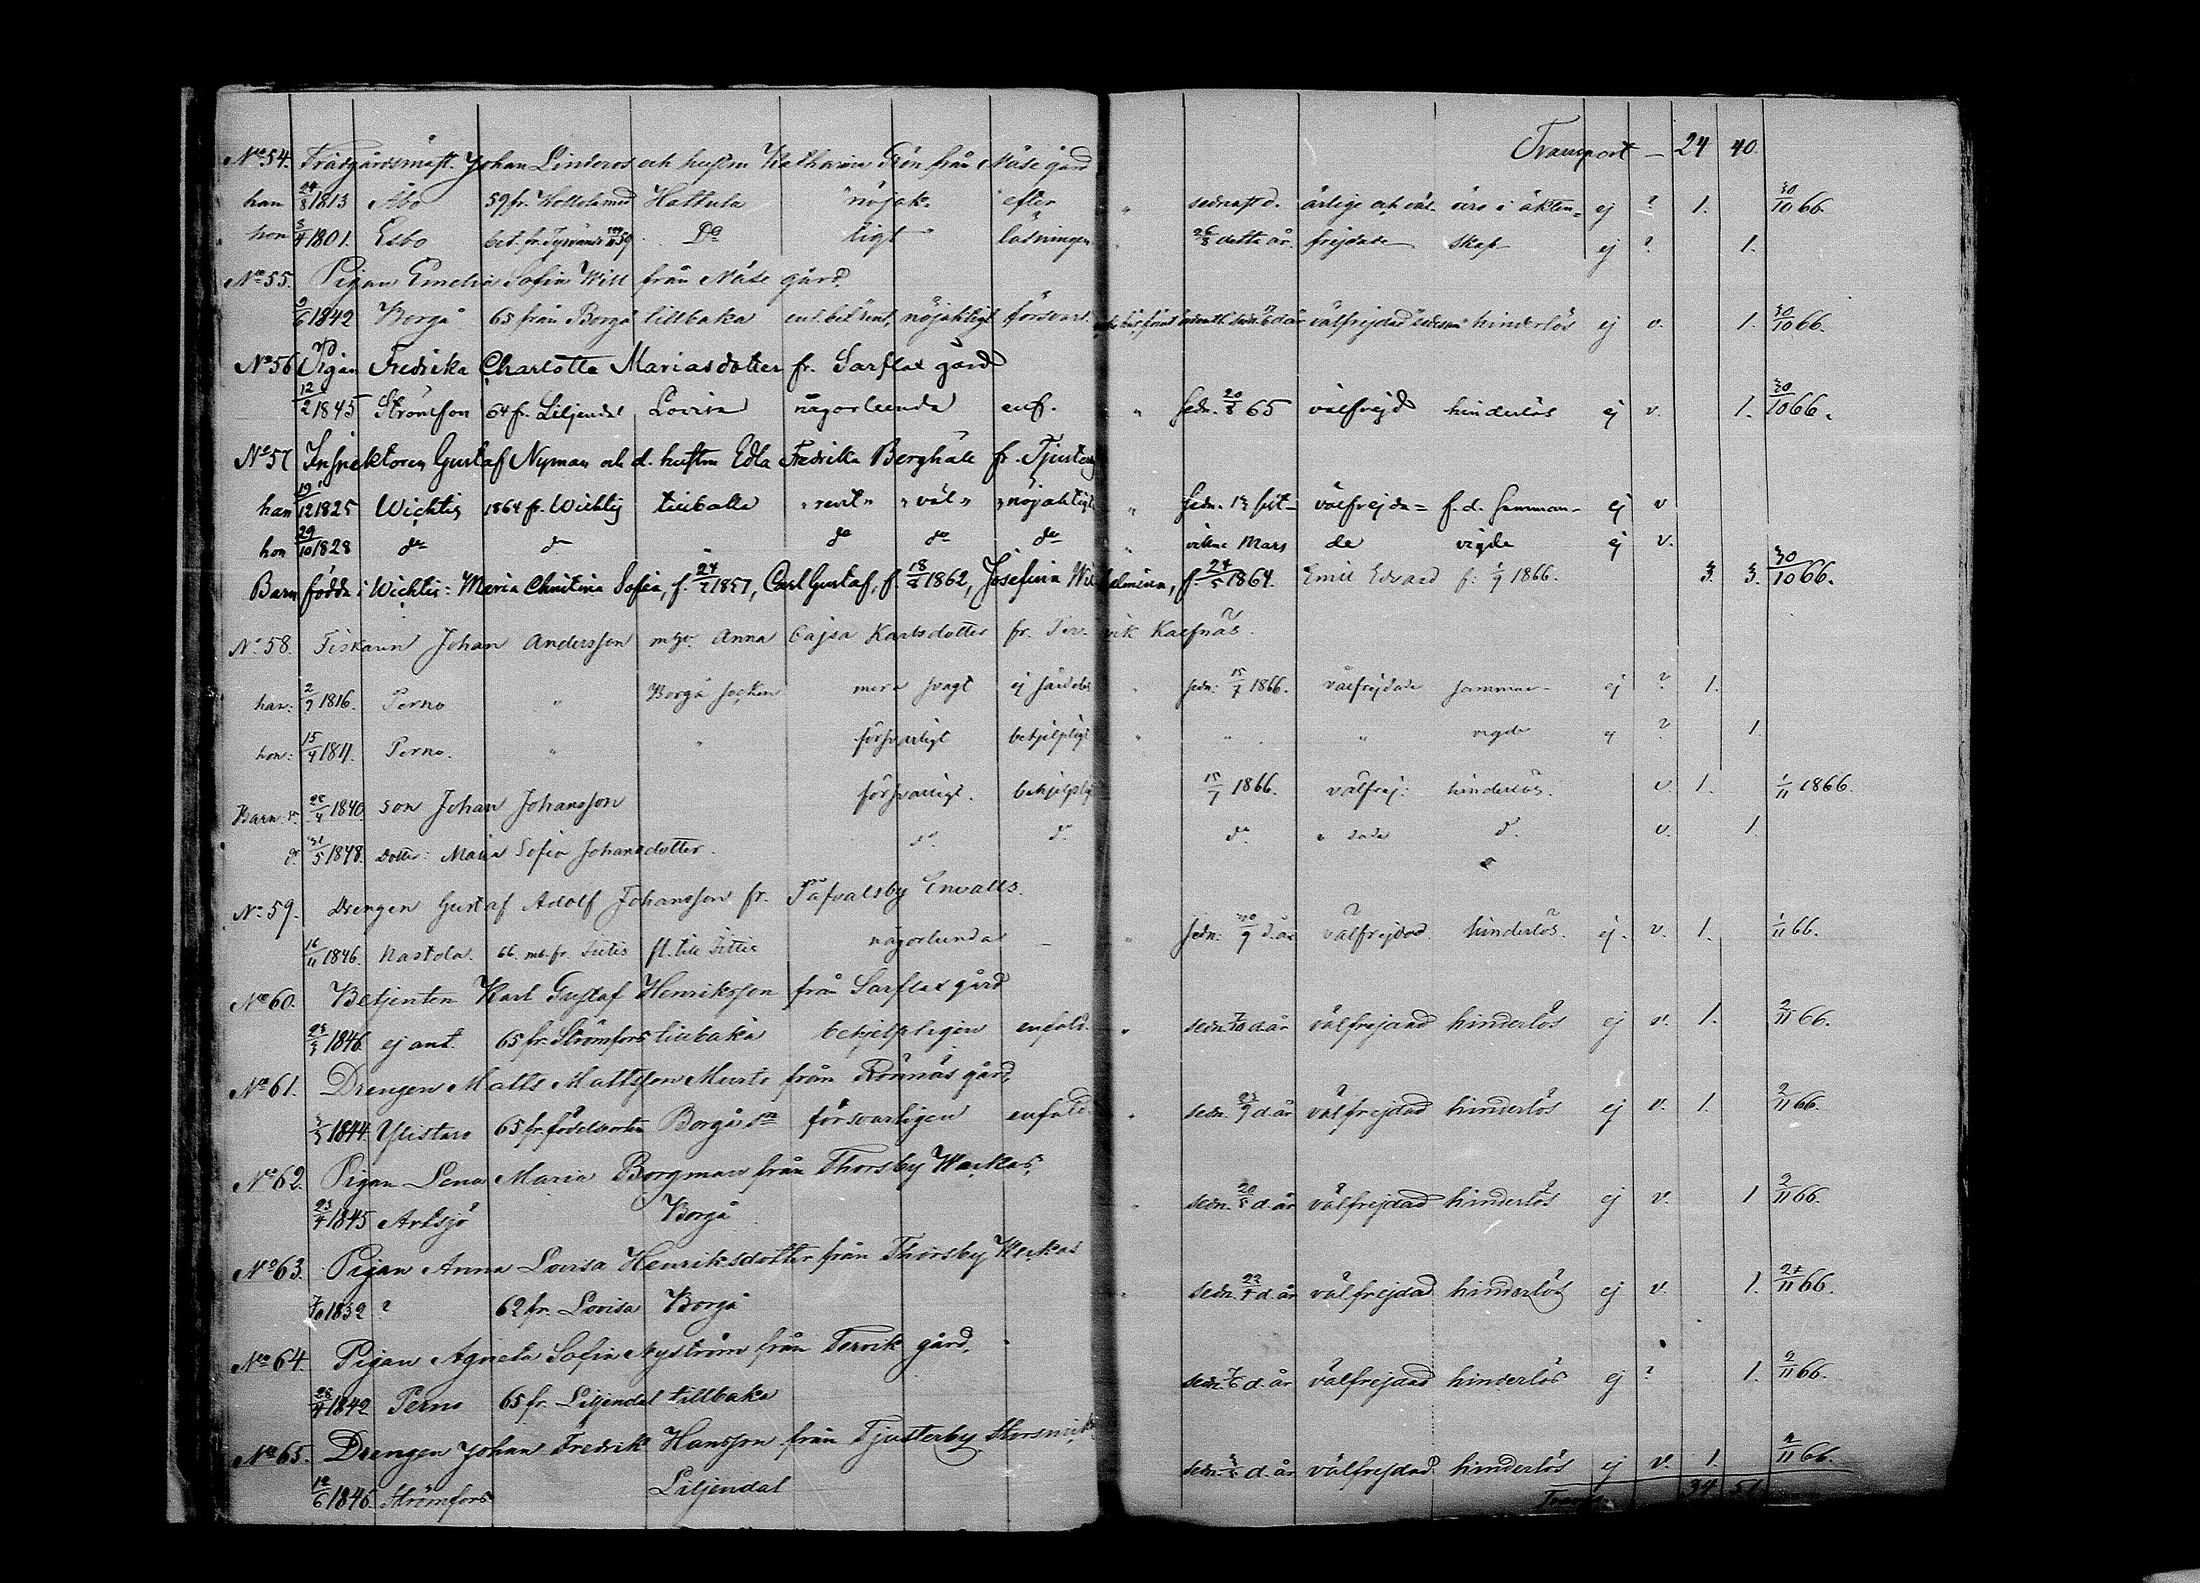 Transport — 24 40.
No 54. Trädgårdsmäst. Johan Linderos och hustru Katharina från Näse gård
han 24/8 1813 Åbo 59 fr. Hattula nöjak- efter sednast d. ärlige och väl- äro i äkten- ej ? 1. 30/10 66.
hon 3/4 1801. Esbo bet. fr. 59 Do ligt läsningen detta år frejdade skap ej ? 1.
No 55. Pigan Emelia Sofia Will från Näse gård.
9/6 1842 Borgå 65 från Borgå tillbaka nöjaktigt försvarl. d år välfrejdad hinderlös ej v. 1. 30/10 66.
No 56 Pigan Fredrika Charlotta Mariasdotter fr. Sarflax gård
12/2 1845 Strömfors 64 fr. Liljendal Lovisa någorlunda enf. " sedn. 20/8 65 välfrejd hinderlös ej v. 1. 30/10 66.
No 57 Inspektoren Gustaf Nyman och d. hustru Edla Fredrika Berghäll fr. Tjusterby
han 19/12 1825 Wichtis 1864 fr. Wichtis tillbaka "rent" "väl" "nöjaktigt " sedn. sist- välfrejda= f. d. samman- ej v
hon 29/10 1828 do do do do do " vikne Mars de vigde ej v.
Barn födda i Wichtis: Maria Christina Sofia, f. 1857, Carl Gustaf, f. 1862, Josefina Wilhelmina, f. 24/5 1864. Emil Edvard f. 1866. 3. 3. 30/10 66.
No 58. Fiskaren Johan Andersson m. h. Anna Cajsa Karlsdotter fr. Tervik Kalfnäs.
han: 2/9 1816. Perno " Borgå socken mera svagt ej " sedn: 15/7 1866. välfrejdade samman- ej ? 1.
hon: 15/4 1811. Perno. " " försvarligt behjelpligt " " " vigde ej ? 1
Barn: 1840. son Johan Johansson försvarligt. behjelpligt 15/7 1866. välfrej: hinderlös. v 1. 1/11 1866.
d. 31/5 1848. Dotter: Maria Sofia Johansdotter. do. do do. " dade do. v. 1.
No 59. Drengen Gustaf Adolf Johansson fr. Tafvalsby Envalls.
16/11 1846. Nastola. 66. mb. fr. Sittis fl. till Sittis någorlunda — " sedn: 30/9 d. år välfrejdad hinderlös. ej. v. 1. 1/11 66.
No 60. Betjenten Karl Gustaf Henriksson från Sarflax gård
1846 ej ant. 65 fr. Strömfors tillbaka behjelpligen enfald. " sedn. 7/10 d. år välfrejdad hinderlös ej v. 1. 2/11 66.
No 61. Drengen Matts Mattsson från Rönnäs gård,
1844. Ylistaro 65 fr. födelseorten Borgå sn försvarligen enfald. " sedn. 23/9 d. år välfrejdad hinderlös ej v. 1. 2/11 66.
No 62. Pigan Lena Maria Borgman från Thorsby Warkas,
23/4 1845 Artsjö Borgå " sedn. d. år välfrejdad hinderlös ej v. 1 2/11 66.
No 63. Pigan Anna Lovisa Henriksdotter från Thorsby Warkas
7/10 1832 ? 62 fr. Lovisa Borgå " sedn. d. år välfrejdad hinderlös ej v. 1. 66.
No 64. Pigan Agneta Sofia Nyström från Tervik gård,
28/4 1842 Perno 65 fr. Liljendal tillbaka sedn. 7/6 d. år välfrejdad hinderlös ej ? 1. 2/11 66.
No 65. Drengen Johan Fredrik Hansson från Tjusterby
12/6 1846 Strömfors Liljendal sedn. d. år välfrejdad hinderlös ej v. 1. 66.
34 51